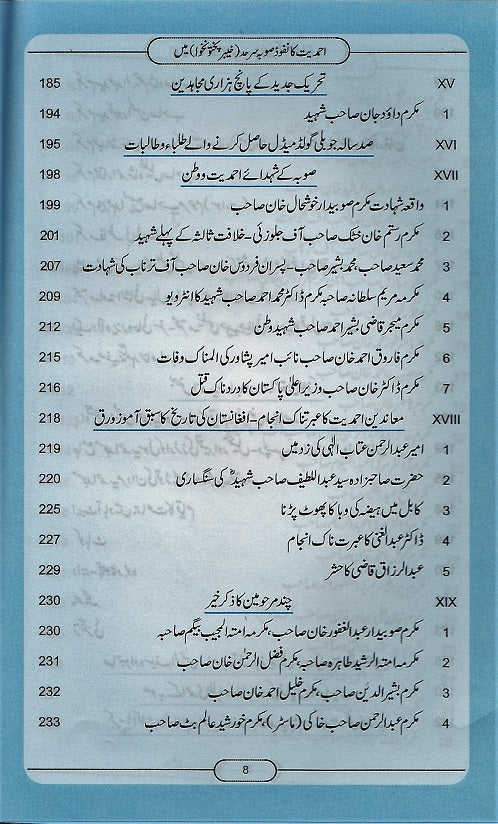 احمدیت کا نفوذ صوبہ سرحد (خیبر پختونخوا) میں
XV تحریک جدید کے پانچ ہزاری مجاہدین 185
1 مکرم داؤد جان صاحب شہید 194
XVI صد سالہ جوبلی گولڈ میڈل حاصل کرنے والے طلباء و طالبات 195
XVII صوبہ کے شہدائے احمدیت و وطن 198
1 واقعہ شہادت مکرم صوبیدار خوشحال خان صاحب 199
2 مکرم رستم خان خٹک صاحب آف جلوزئی - خلافت ثالثہ کے پہلے شہید 201
3 محمد سعید صاحب، محمد بشیر صاحب - پسران فردوس خان صاحب آف ترناب کی شہادت 207
4 مکرمہ مریم سلطانہ صاحبہ مکرم ڈاکٹر محمد احمد صاحب شہید کا انٹرویو 209
5 مکرم میجر قاضی بشیر احمد صاحب شہید وطن 212
6 مکرم فاروق احمد خان صاحب نائب امیر پشاور کی المناک وفات 215
7 مکرم ڈاکٹر خان صاحب وزیر اعلیٰ پاکستان کا دردناک قتل 216
XVIII معاندین احمدیت کا عبرتناک انجام - افغانستان کی تاریخ کا سبق آموز ورق 218
1 امیر عبدالرحمن عتاب الٰہی کی زد میں 219
2 حضرت صاحبزادہ سید عبداللطیف صاحب شہیدؓ کی سنگساری 220
3 کابل میں ہیضہ کی وبا کا پھوٹ پڑنا 225
4 ڈاکٹر عبدالغنی کا عبرت ناک انجام 227
5 عبدالرزاق قاضی کا حشر 229
XIX چند مرحومین کا ذکر خیر 230
1 مکرم صوبیدار عبدالغفور خان صاحب، مکرمہ امتہ المجیب بیگم صاحبہ 230
2 مکرمہ امتہ الرشید طاہرہ صاحبہ، مکرم فضل الرحمٰن خان صاحب 231
3 مکرم بشیر الدین صاحب، مکرم خلیل احمد خان صاحب 232
4 مکرم عبدالرحمن صاحب خاکی (ماسٹر)، مکرم خورشید عالم بٹ صاحب 233
8